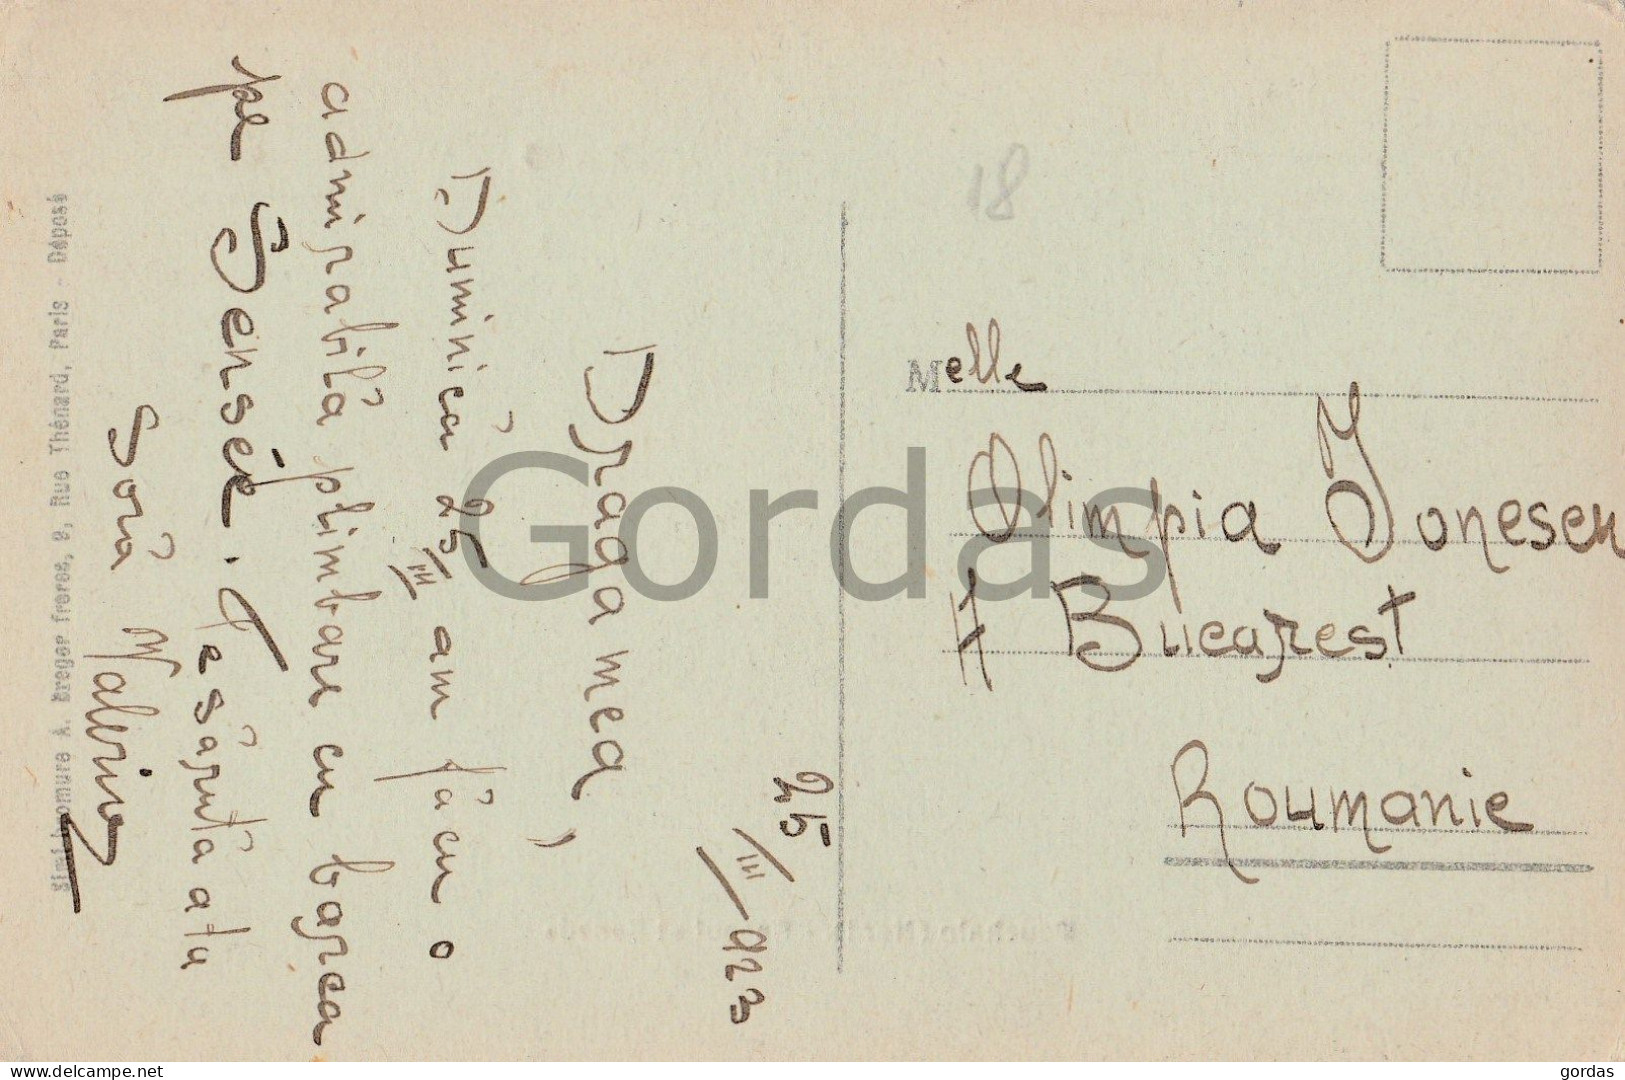 25/III/923
Draga mea,
Duminică 25/III am făcu o
admirabilă plimbare cu barca
pe Sensée. Te sărută a ta
soră Valerica
18
Melle
Olimpia Ionescu
Bucarest
Roumanie
Simi-bromure A. Breger frères, 9, Rue Thénard, Paris - Déposé
Gordas
delcampe.net
gordas